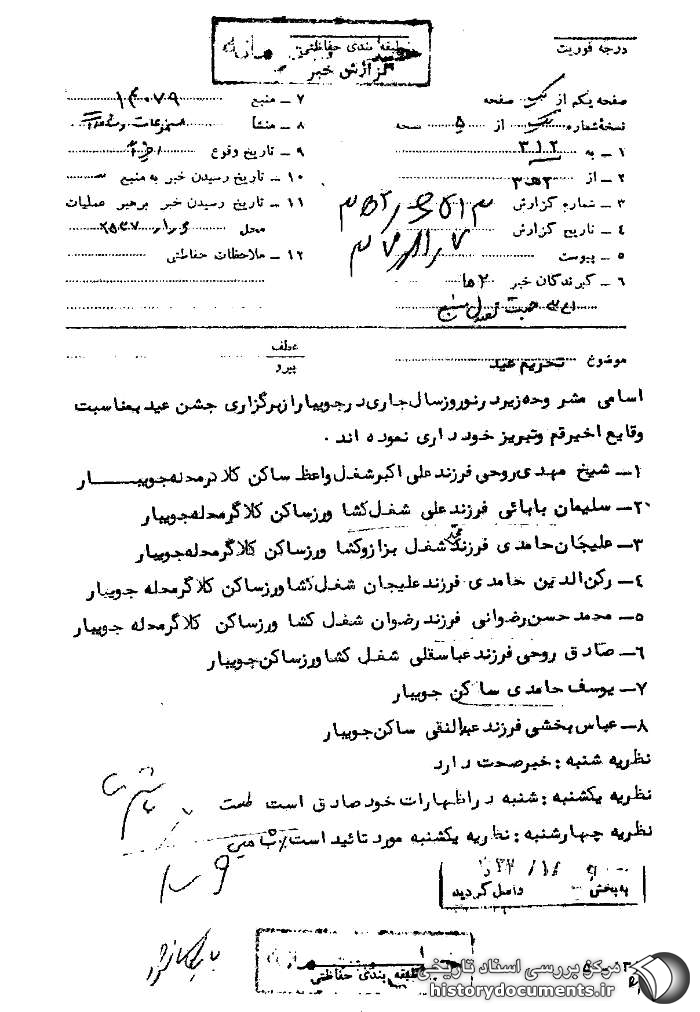 طبقه بندی حفاظتی
گزارش خبر
درجه فوریت
صفحه یکم از یک صفحه
نسخهٔ شماره یک از ۵ نسخه
۱ ـ به ۳۱۲
۲ ـ از ۳ه۲
۳ ـ شماره گزارش
۴ ـ تاریخ گزارش
۵ ـ پیوست
۶ ـ گیرندگان خبر
۷ ـ منبع ۱۴۰۷۹
۸ ـ منشأ
۹ ـ تاریخ وقوع
۱۰ ـ تاریخ رسیدن خبر به منبع
۱۱ ـ تاریخ رسیدن خبر برهبر عملیات
محل
۱۲ ـ ملاحظات حفاظتی
موضوع تحریم عید
عطف
پیرو
اسامی مشروحه زیر در نوروز سال جاری در جویبار از برگزاری جشن عید بمناسبت
وقایع اخیر قم و تبریز خودداری نموده اند .
۱ـ شیخ مهدی روحی فرزند علی اکبر شغل واعظ ساکن کلاگر محله جویبار
۲ـ سلیمان بابائی فرزند علی شغل کشاورز ساکن کلاگر محله جویبار
۳ـ علیجان حامدی فرزند شغل بزاز و کشاورز ساکن کلاگر محله جویبار
۴ـ رکن الدین حامدی فرزند علیجان شغل کشاورز ساکن کلاگر محله جویبار
۵ـ محمد حسن رضوانی فرزند رضوان شغل کشاورز ساکن کلاگر محله جویبار
۶ـ صادق روحی فرزند عباسقلی شغل کشاورز ساکن جویبار
۷ـ یوسف حامدی ساکن جویبار
۸ـ عباس بخشی فرزند عبدالنقی ساکن جویبار
نظریه شنبه : خبر صحت دارد
نظریه یکشنبه : شنبه در اظهارات خود صادق است
نظریه چهارشنبه : نظریه یکشنبه مورد تائید است
به بخش واصل گردید
طبقه بندی حفاظتی
مرکز بررسی اسناد تاریخی
historydocuments.ir